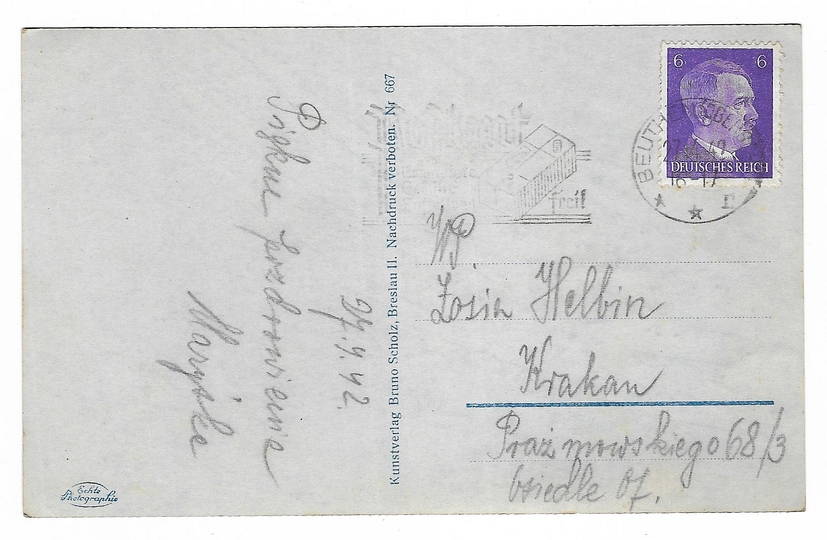 Piękne pozdrowienia
Maryśka
27.4.42.
Kunstverlag Bruno Scholz, Breslau II. Nachdruck verboten. Nr 667
Echte
Photographie
6 6
DEUTSCHES REICH
BEUTHEN
16-17
frei!
WP
Zosia Helbin
Krakau
Prażmowskiego 68/3
Osiedle Of.